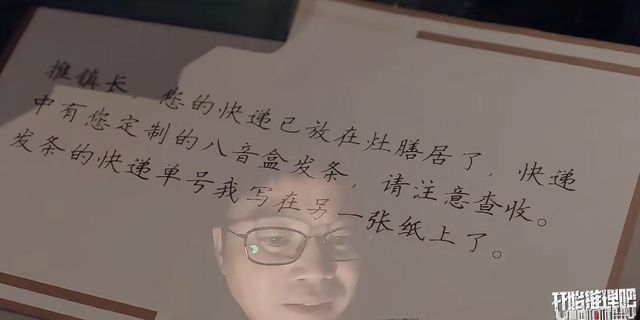 推镇长，您的快递已放在灶膳居了，快递
中有您定制的八音盒发条，请注意查收。
发条的快递单号我写在另一张纸上了。
开始推理吧